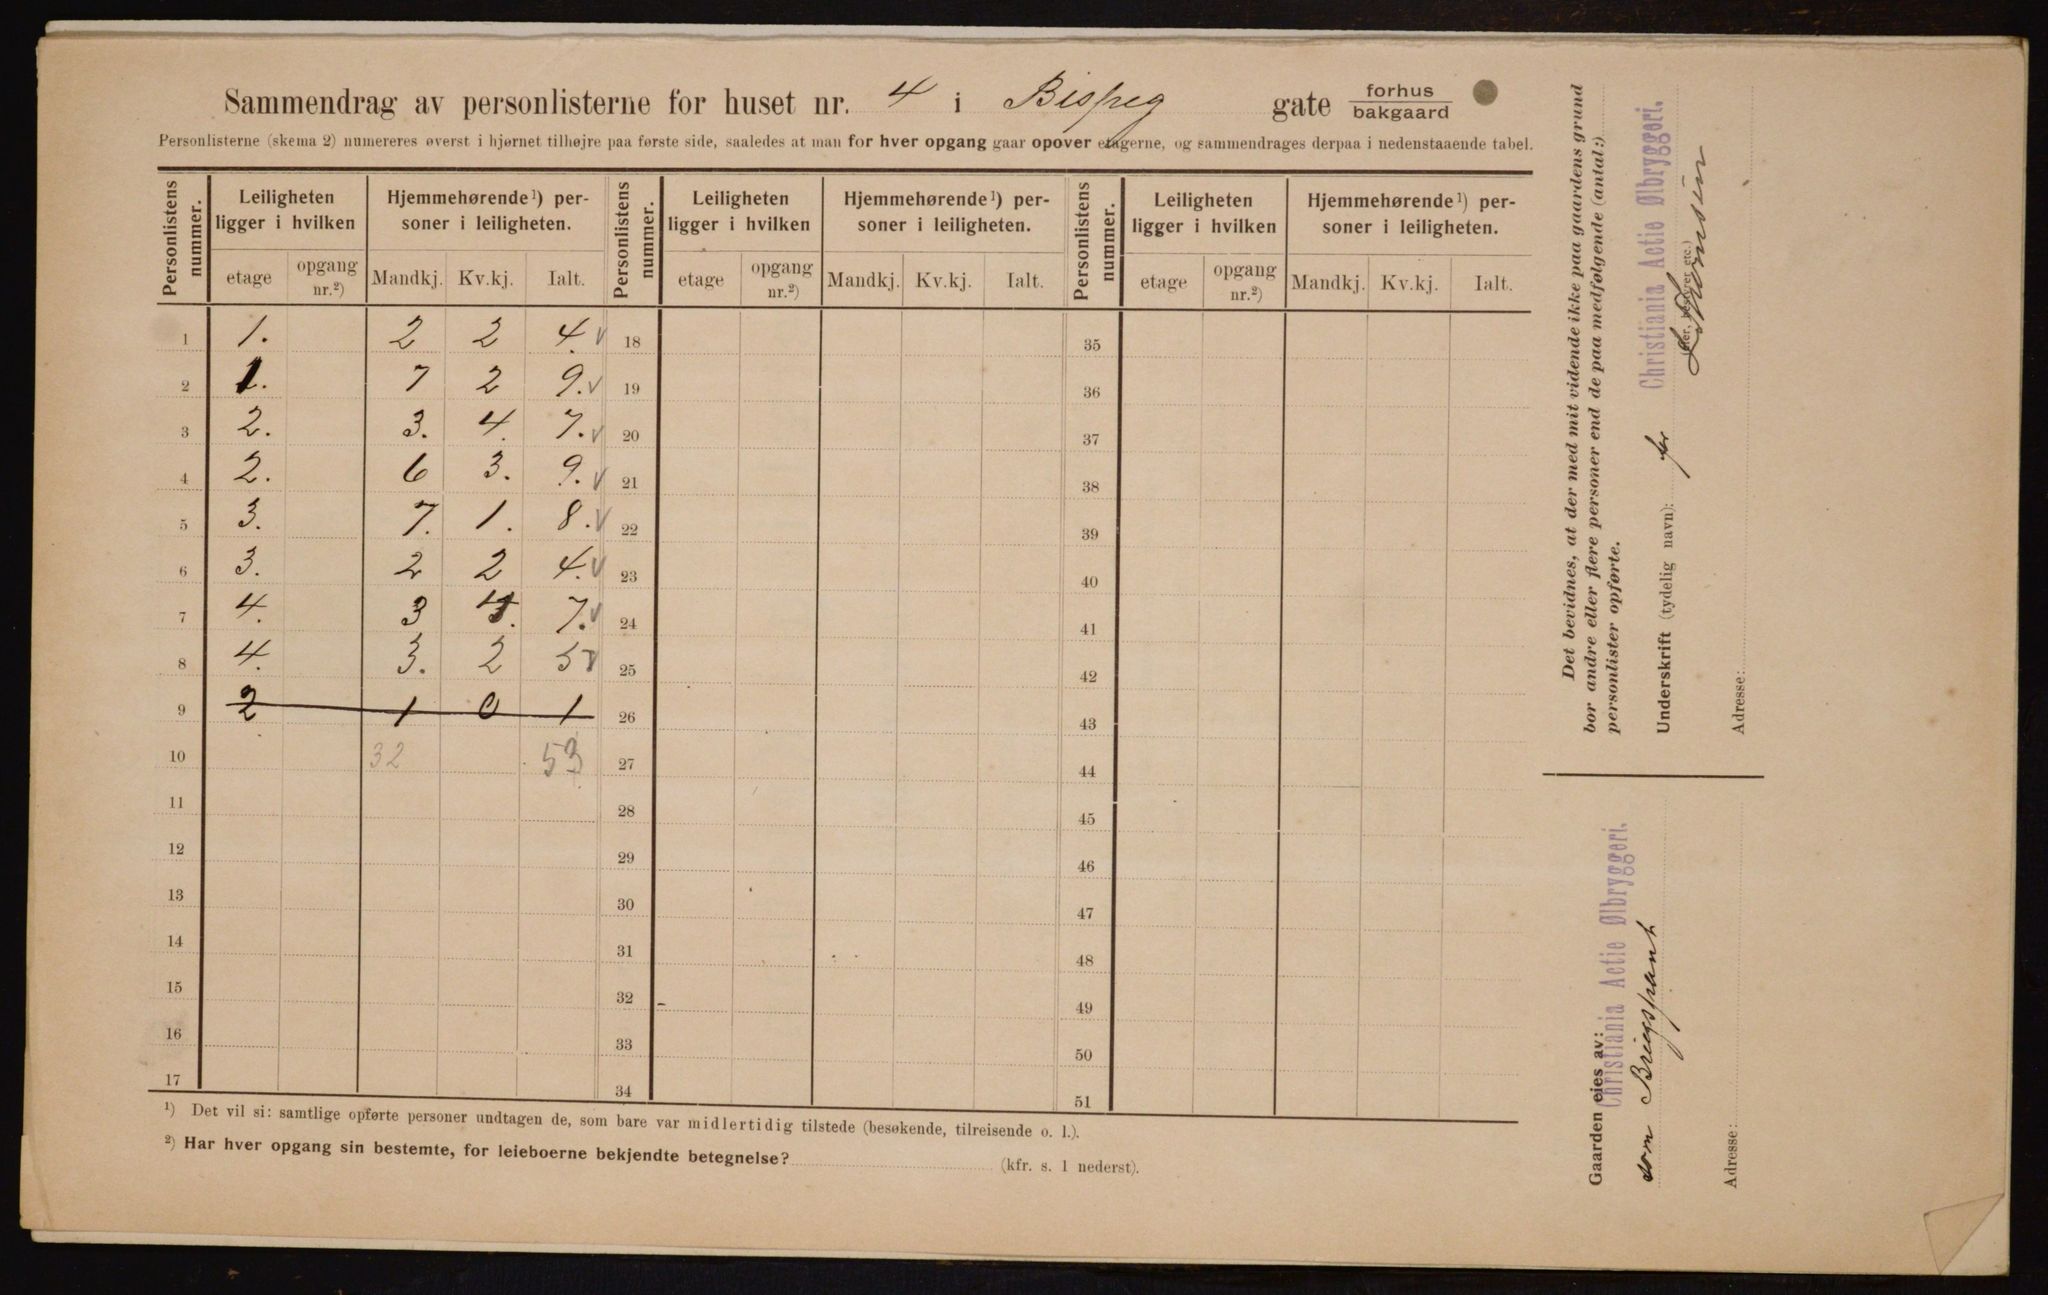 Sammendrag av personlisterne for huset nr. 4 i Bispeg gate forhus
bakgaard
Personlisterne (skema 2) numereres øverst i hjørnet tilhøjre paa første side, saaledes at man for hver opgang gaar opover etagerne, og sammendrages derpaa i nedenstaaende tabel.
Personlistens nummer. Leiligheten ligger i hvilken Hjemmehørende¹) personer i leiligheten. Personlistens nummer. Leiligheten ligger i hvilken Hjemmehørende¹) personer i leiligheten. Personlistens nummer. Leiligheten ligger i hvilken Hjemmehørende¹) personer i leiligheten.
etage opgang nr.²) Mandkj. Kv.kj. Ialt. etage opgang nr.²) Mandkj. Kv.kj. Ialt. etage opgang nr.²) Mandkj. Kv.kj. Ialt.
1 1. 2 2 4. 18 35
2 1. 7 2 9. 19 36
3 2. 3. 4. 7. 20 37
4 2. 6 3. 9. 21 38
5 3. 7. 1. 8. 22 39
6 3. 2 2 4. 23 40
7 4. 3 4. 7. 24 41
8 4. 3. 2 5 25 42
9 2 1 0 1 26 43
10 32 53 27 44
11 28 45
12 29 46
13 30 47
14 31 48
15 32 49
16 33 50
17 34 51
¹) Det vil si: samtlige opførte personer undtagen de, som bare var midlertidig tilstede (besøkende, tilreisende o. l.).
²) Har hver opgang sin bestemte, for leieboerne bekjendte betegnelse? (kfr. s. 1 nederst).
Det bevidnes, at der med mit vidende ikke paa gaardens grund
bor andre eller flere personer end de paa medfølgende (antal:)
personlister opførte.
Christiania Actie Ølbryggeri.
Underskrift (tydelig navn): for
(eier, bestyrer etc.)
Adresse:
Gaarden eies av:
Christiania Actie Ølbryggeri.
som Brugspant
Adresse: